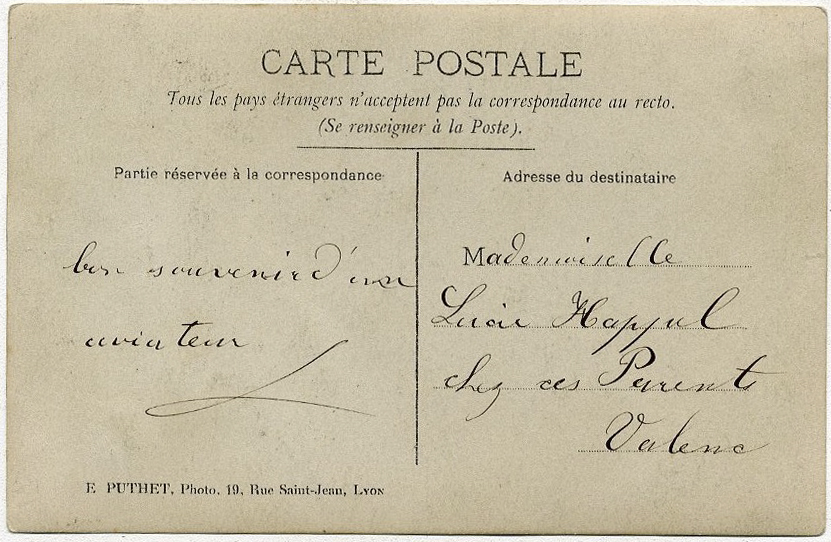 CARTE POSTALE
Tous les pays étrangers n'acceptent pas la correspondance au recto.
(Se renseigner à la Poste).
Partie réservée à la correspondance
bon souvenir d'un
aviateur
Adresse du destinataire
Mademoiselle
Lucie Happul
chez ces Parents
Valence
E PUTHET, Photo. 19, Rue Saint-Jean, LYON